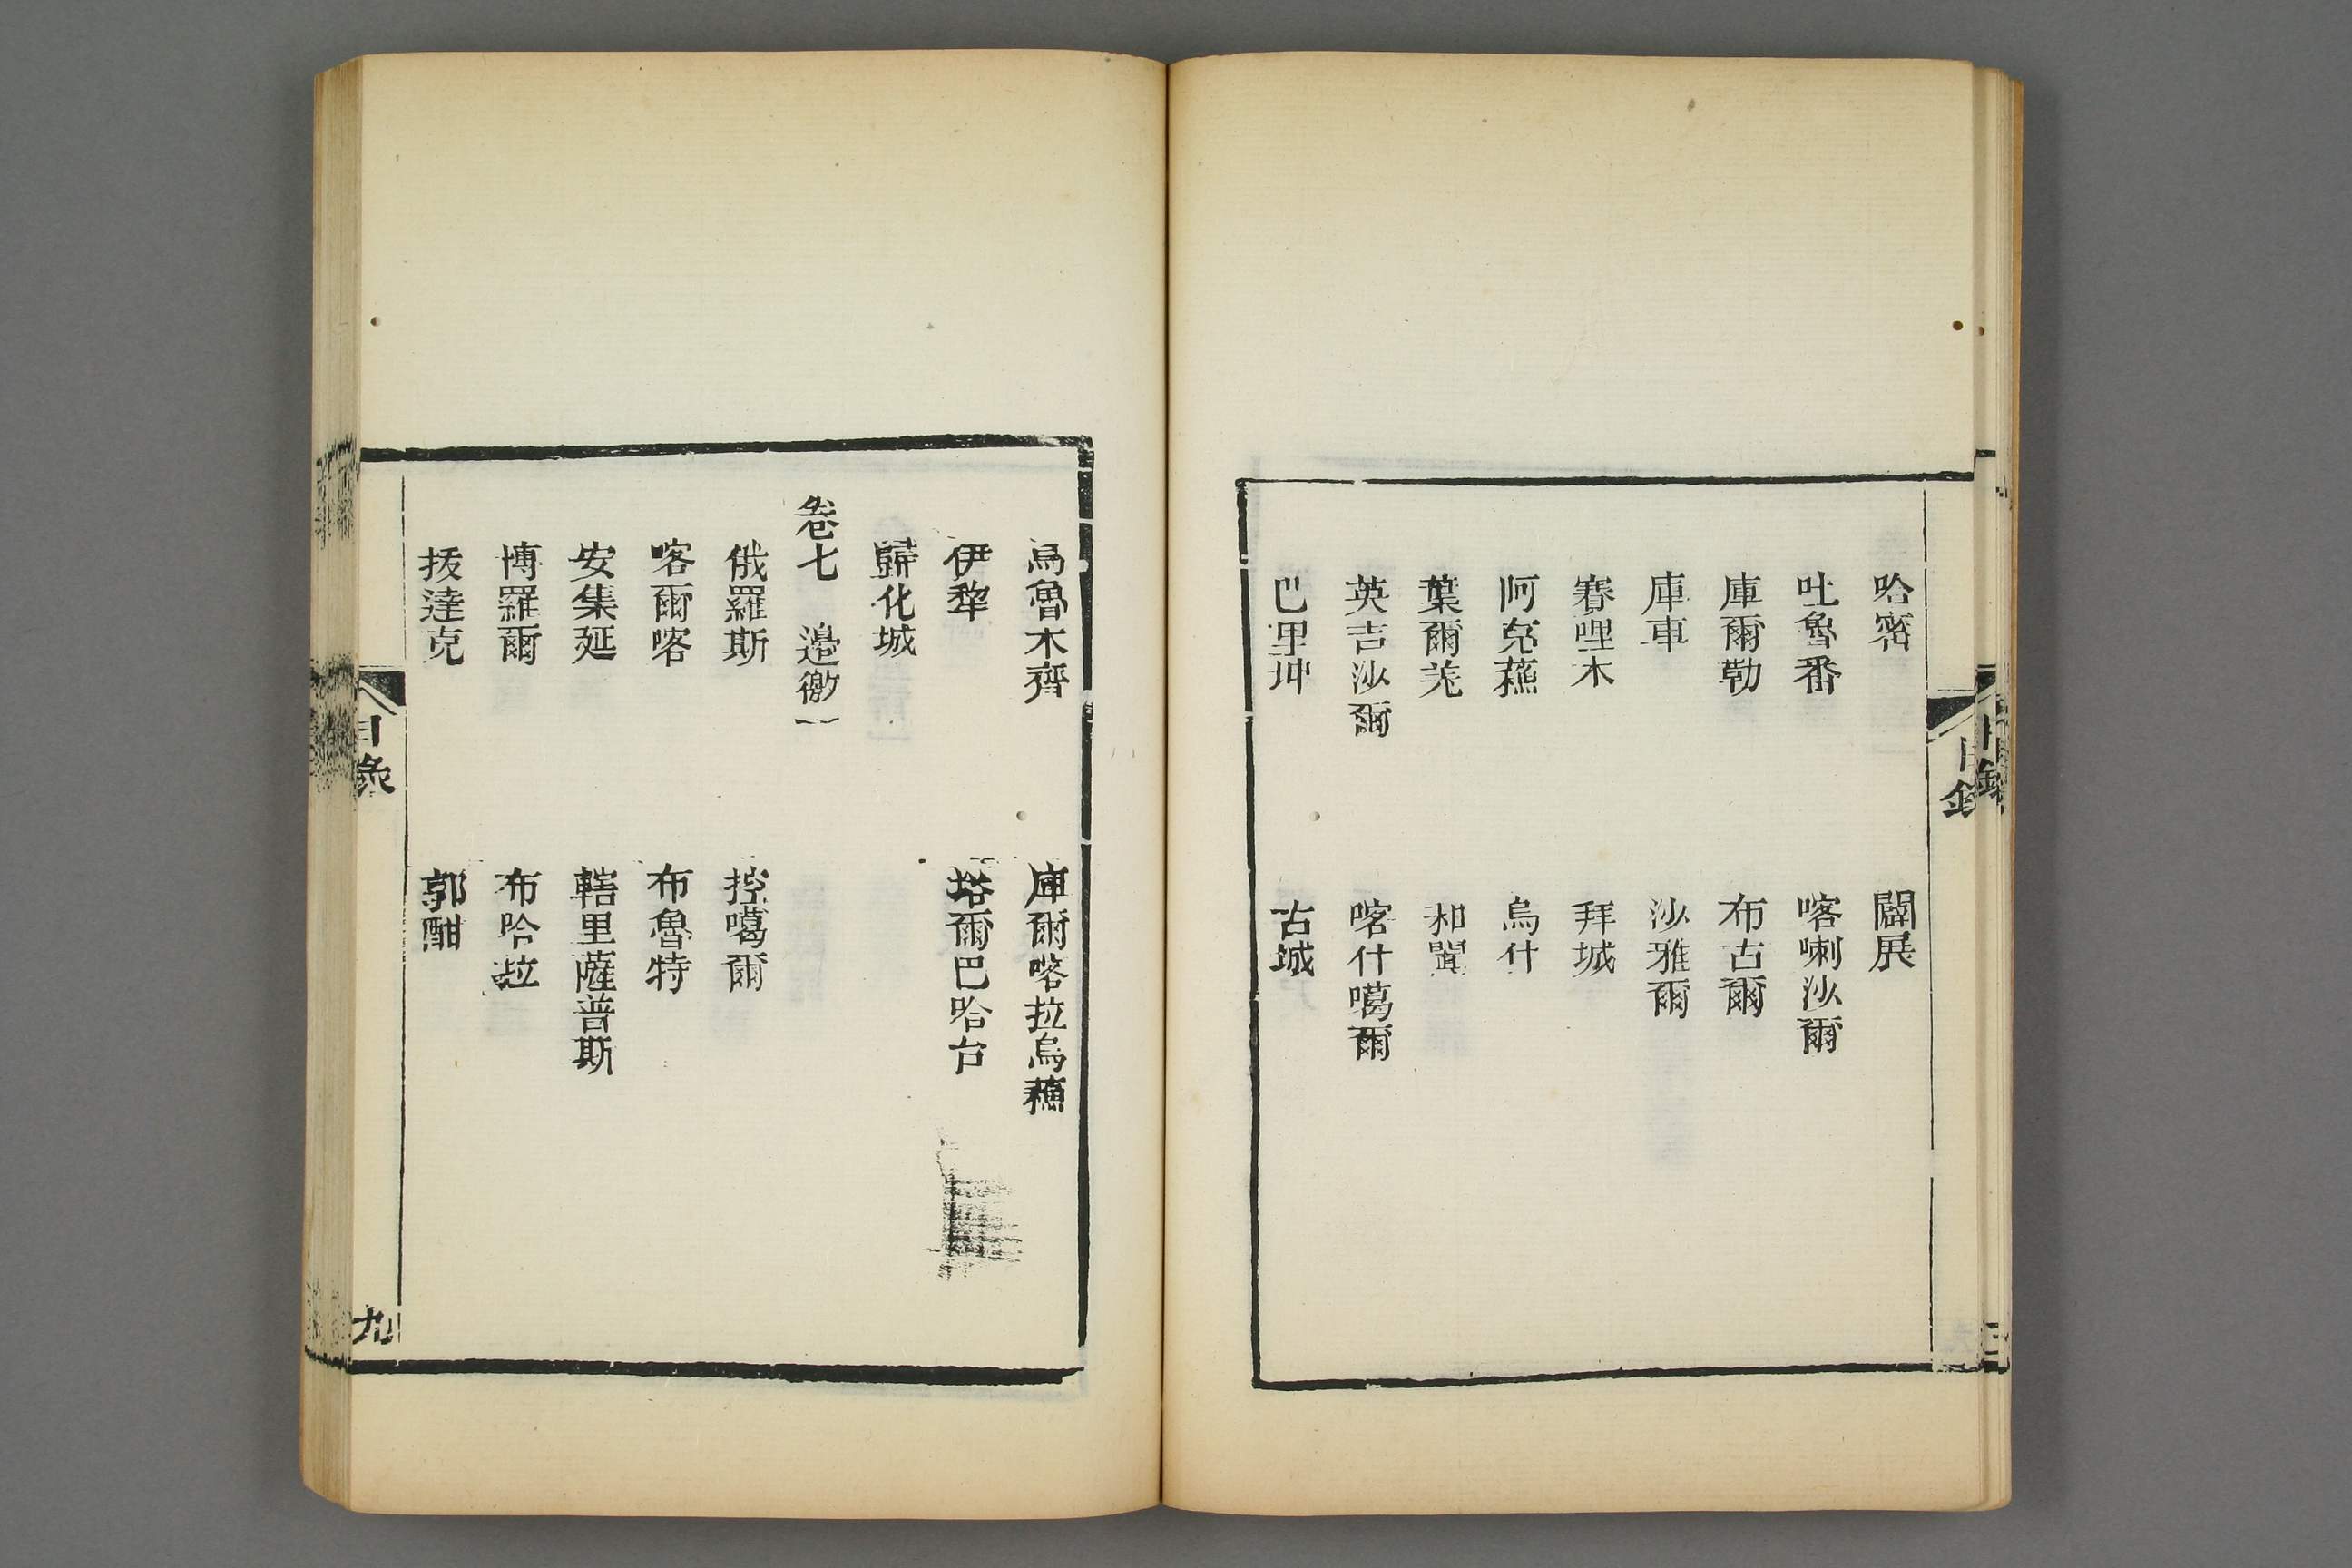 哈密　闢展
吐魯番　喀喇沙爾
庫爾勒　布古爾
庫車　沙雅爾
賽哩木　拜城
阿克蘇　烏什
葉爾羌　和闐
英吉沙爾　喀什噶爾
巴里坤　古城
烏魯木齊　庫爾喀拉烏蘇
伊犂　塔爾巴哈台
歸化城
卷七　邊徼一
俄羅斯　控噶爾
喀爾喀　布魯特
安集延　轄里薩普斯
博羅爾　布哈拉
拔達克　郭酣
目錄
九